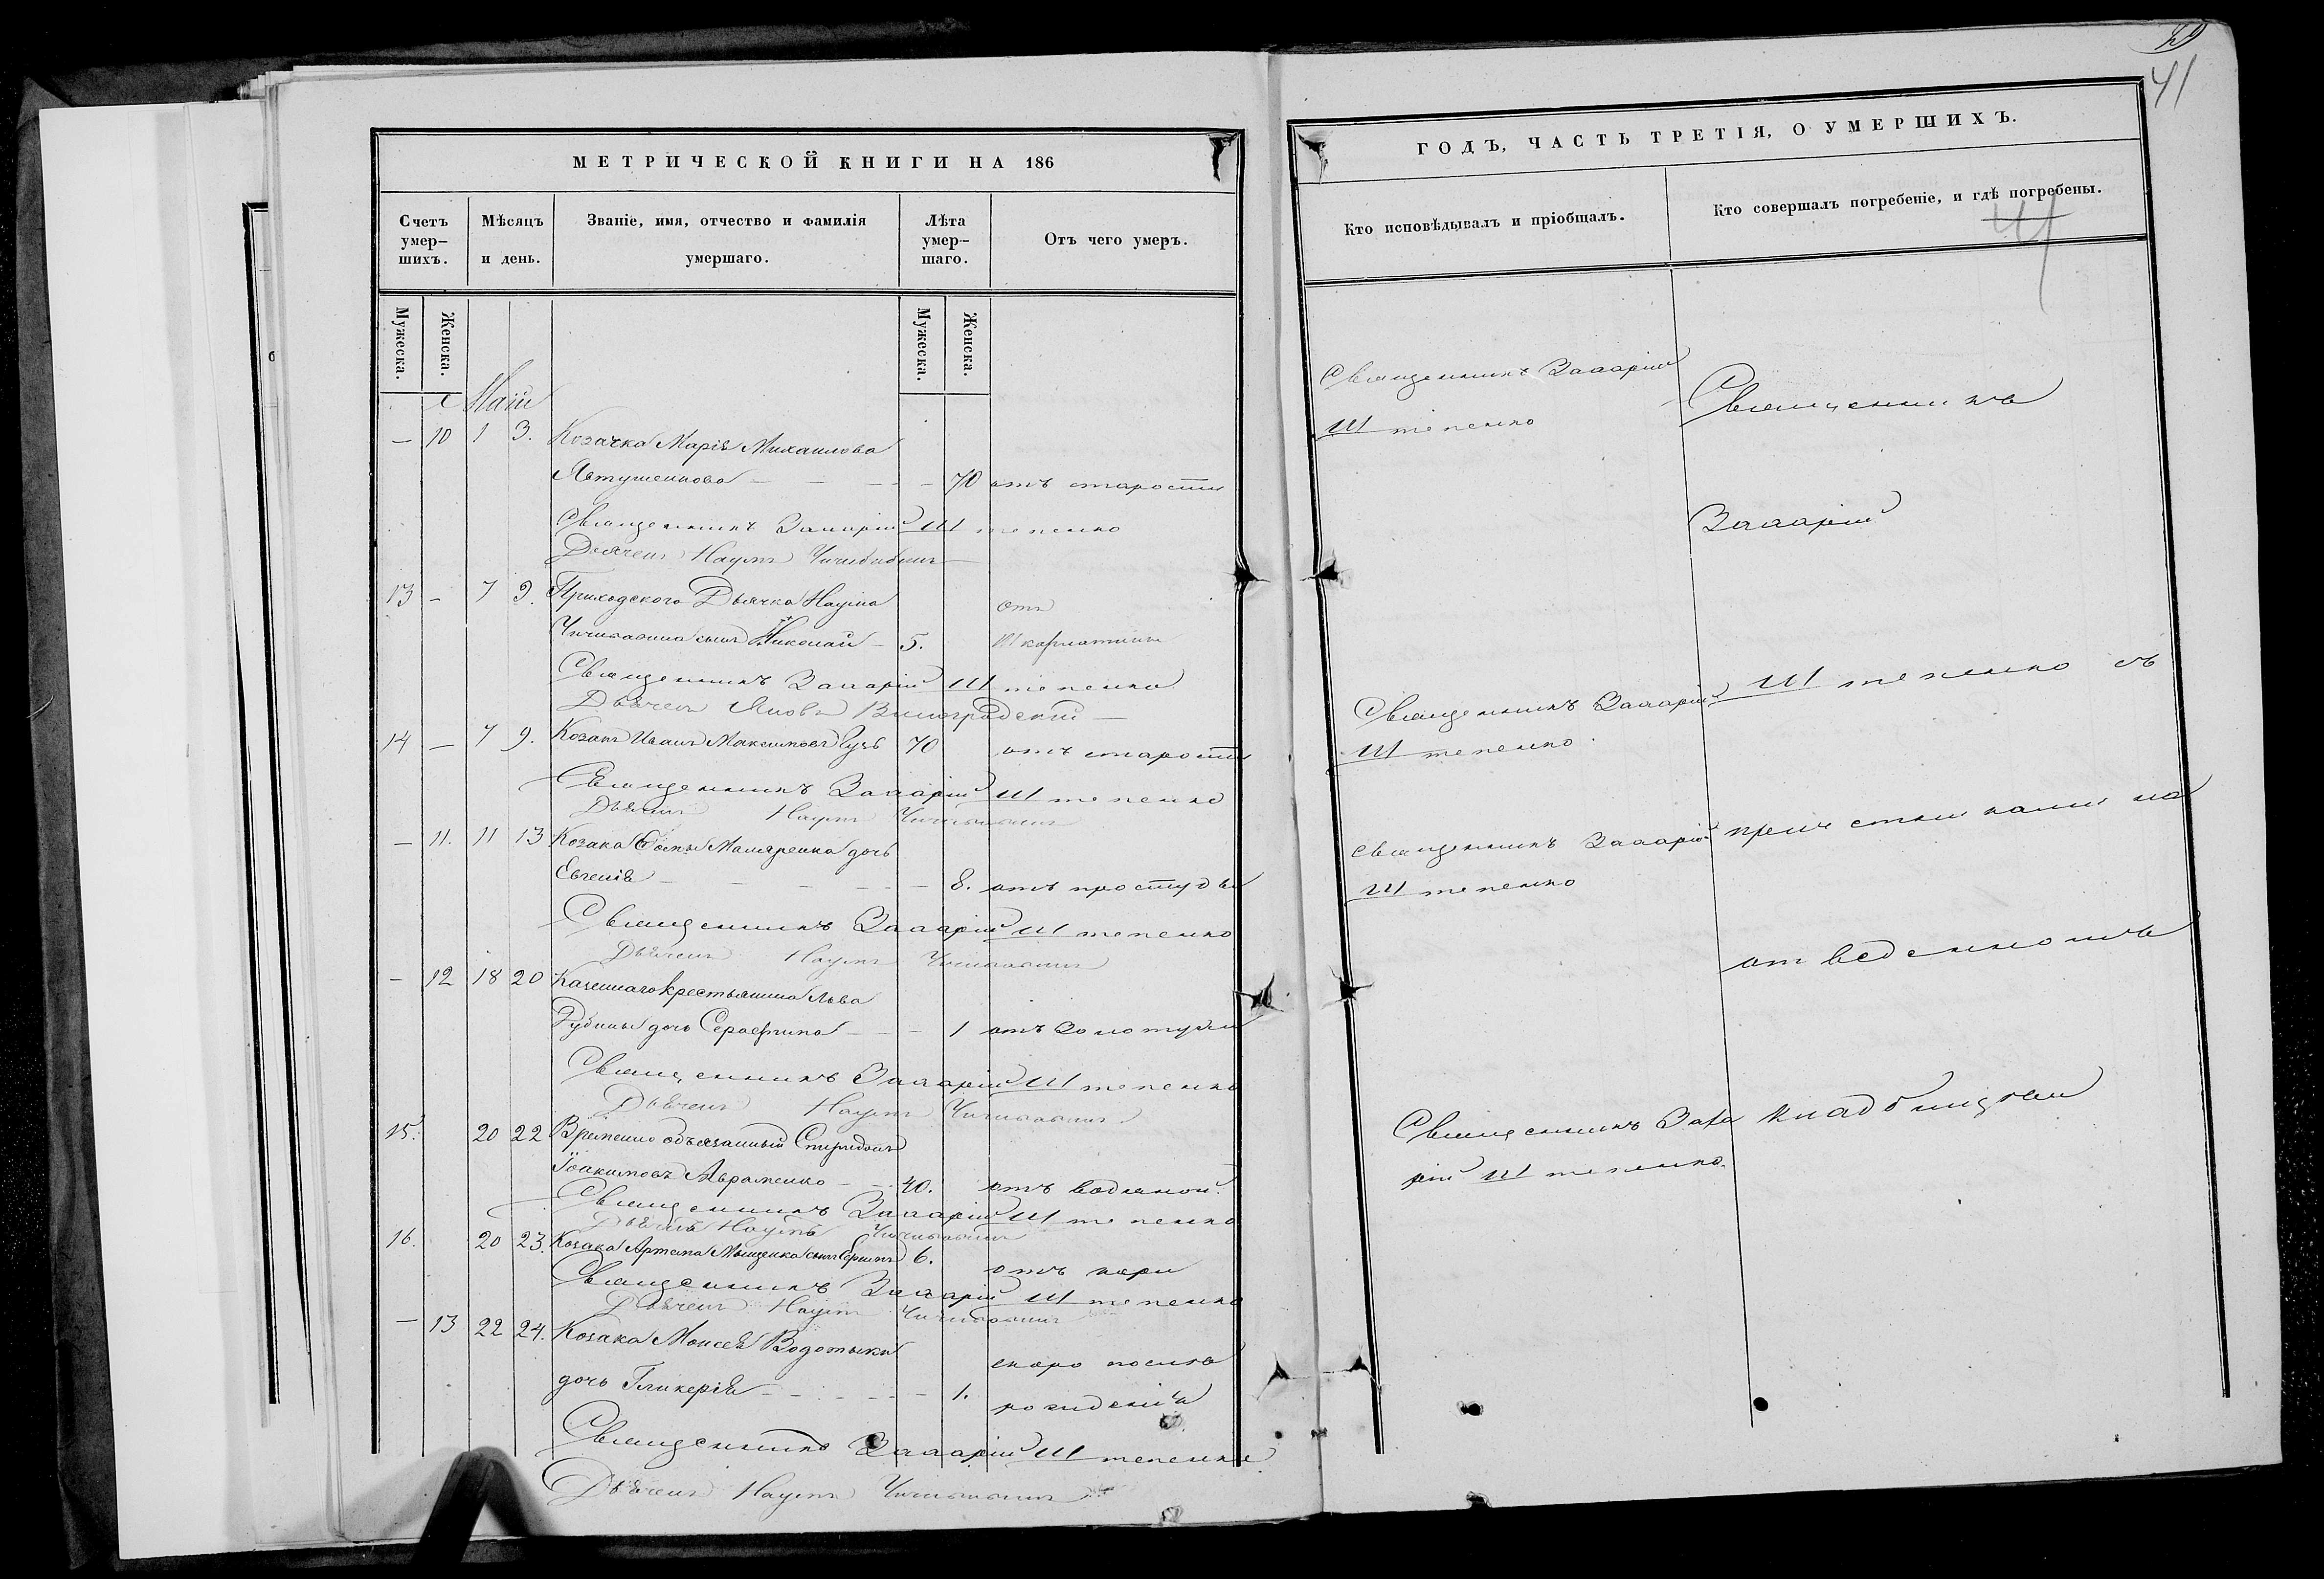 МЕТРИЧЕСКОЙ КНИГИ НА 186
Счетъ умер-шихъ.
Мѣсяцъ и день.
Званіе, имя, отчество и фамилія умершаго.
Лѣта умер-шаго.
Отъ чего умеръ.
Мужеска.
Женска.
Мужеска.
Женска.
Маій
— 10 1 3. Козачка Марія Михаилова
Явтушенкова — 70 отъ старости
Священникъ Захарій Штепенко
Дьячекъ Наумъ
13 — 7 9. Приходского Дьячка Наума отъ
сынъ Николай — 5. Шкарлатины
Священникъ Захарій Штепенко
Дьячекъ Яковъ Виноградскій
14 — 7 9. Козакъ Иванъ Максимовъ Гузь 70 отъ старости
Священникъ Захарій Штепенко
Дьячекъ Наумъ
— 11. 11 13 Козака дочь
Евгенія — 8. отъ простуды
Священникъ Захарій Штепенко
Дьячекъ Наумъ
— 12 18 20 Казеннаго крестьянина Льва
дочь Серафима — 1 отъ Золотухи
Священникъ Захарій Штепенко
Дьячекъ Наумъ
15. 20 22 Временно обязанный Спиридонъ
Іоакимовъ Авраменко — 40. отъ водяной.
Священникъ Захарій Штепенко
Дьячекъ Наумъ
16. 20 23. Козака Артема Мищенка сынъ 6. отъ кори
Священникъ Захарій Штепенко
Дьячекъ Наумъ
— 13 22 24. Козака Моисея Водотыки скоро послѣ
дочь Гликерія — 1. рожденія
Священникъ Захарій Штепенко
Дьячекъ Наумъ
41
ГОДЪ, ЧАСТЬ ТРЕТІЯ, О УМЕРШИХЪ.
Кто исповѣдывалъ и пріобщалъ.
Кто совершалъ погребеніе, и гдѣ погребены.
41
Священникъ Захарій
Штепенко
Священникъ Захарій
Штепенко
Священникъ Захарій
Штепенко
Священникъ Заха
рій Штепенко.
Священникъ
Захарій
Штепенко съ
причетниками на
отведенномъ
кладбищѣ